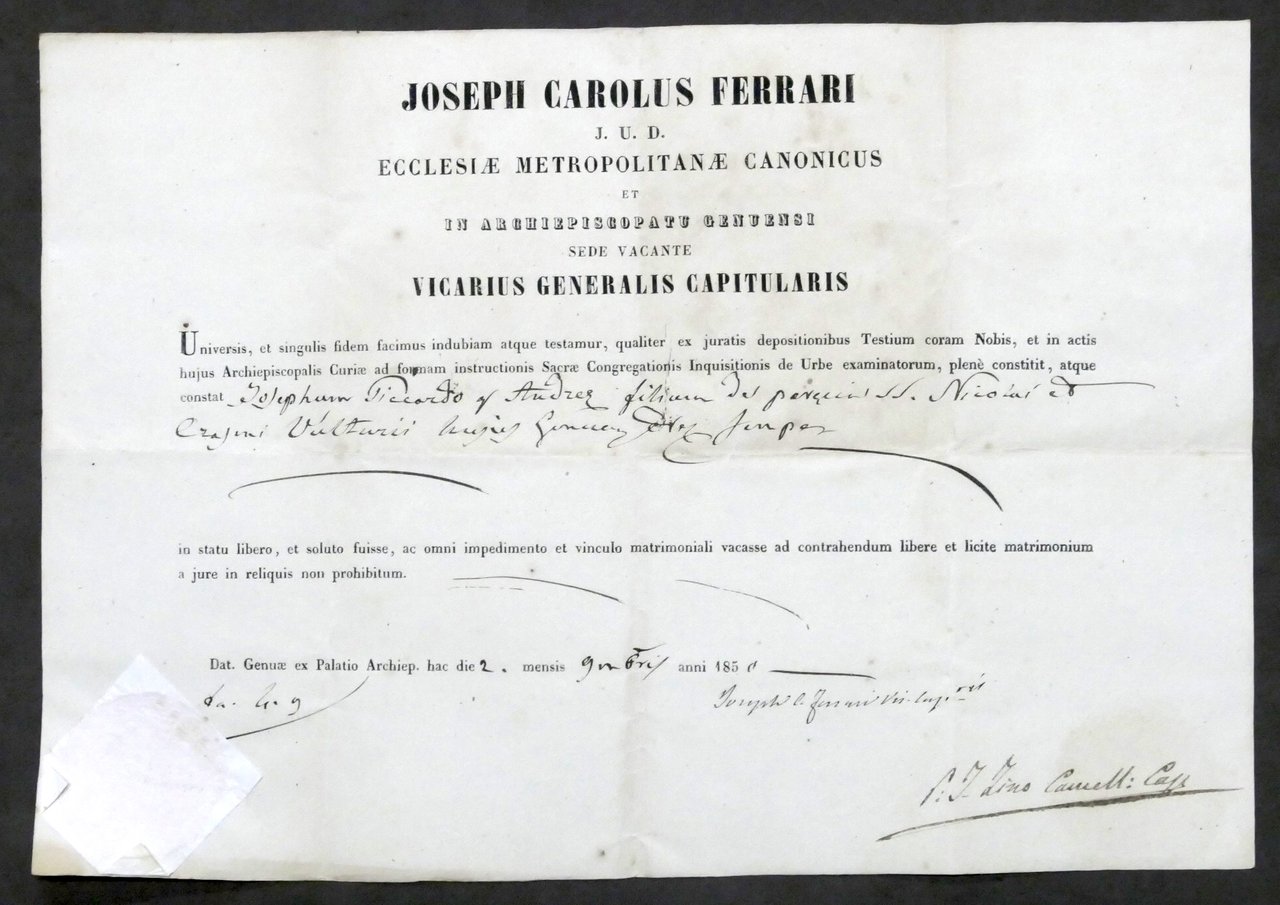 JOSEPH CAROLUS FERRARI
J. U. D.
ECCLESIÆ METROPOLITANÆ CANONICUS
ET
IN ARCHIEPISCOPATU GENUENSI
SEDE VACANTE
VICARIUS GENERALIS CAPITULARIS
Universis, et singulis fidem facimus indubiam atque testamur, qualiter ex juratis depositionibus Testium coram Nobis, et in actis
hujus Archiepiscopalis Curiæ ad formam instructionis Sacræ Congregationis Inquisitionis de Urbe examinatorum, plenè constitit, atque
constat Josephum Piccardo q Andreæ filium S. Nicolai et
Erasmi Vulturii hujus semper
in statu libero, et soluto fuisse, ac omni impedimento et vinculo matrimoniali vacasse ad contrahendum libere et licite matrimonium
a jure in reliquis non prohibitum.
Dat. Genuæ ex Palatio Archiep. hac die 2. mensis 9mbris anni 185
Joseph C. Ferrari Vic. Cap.